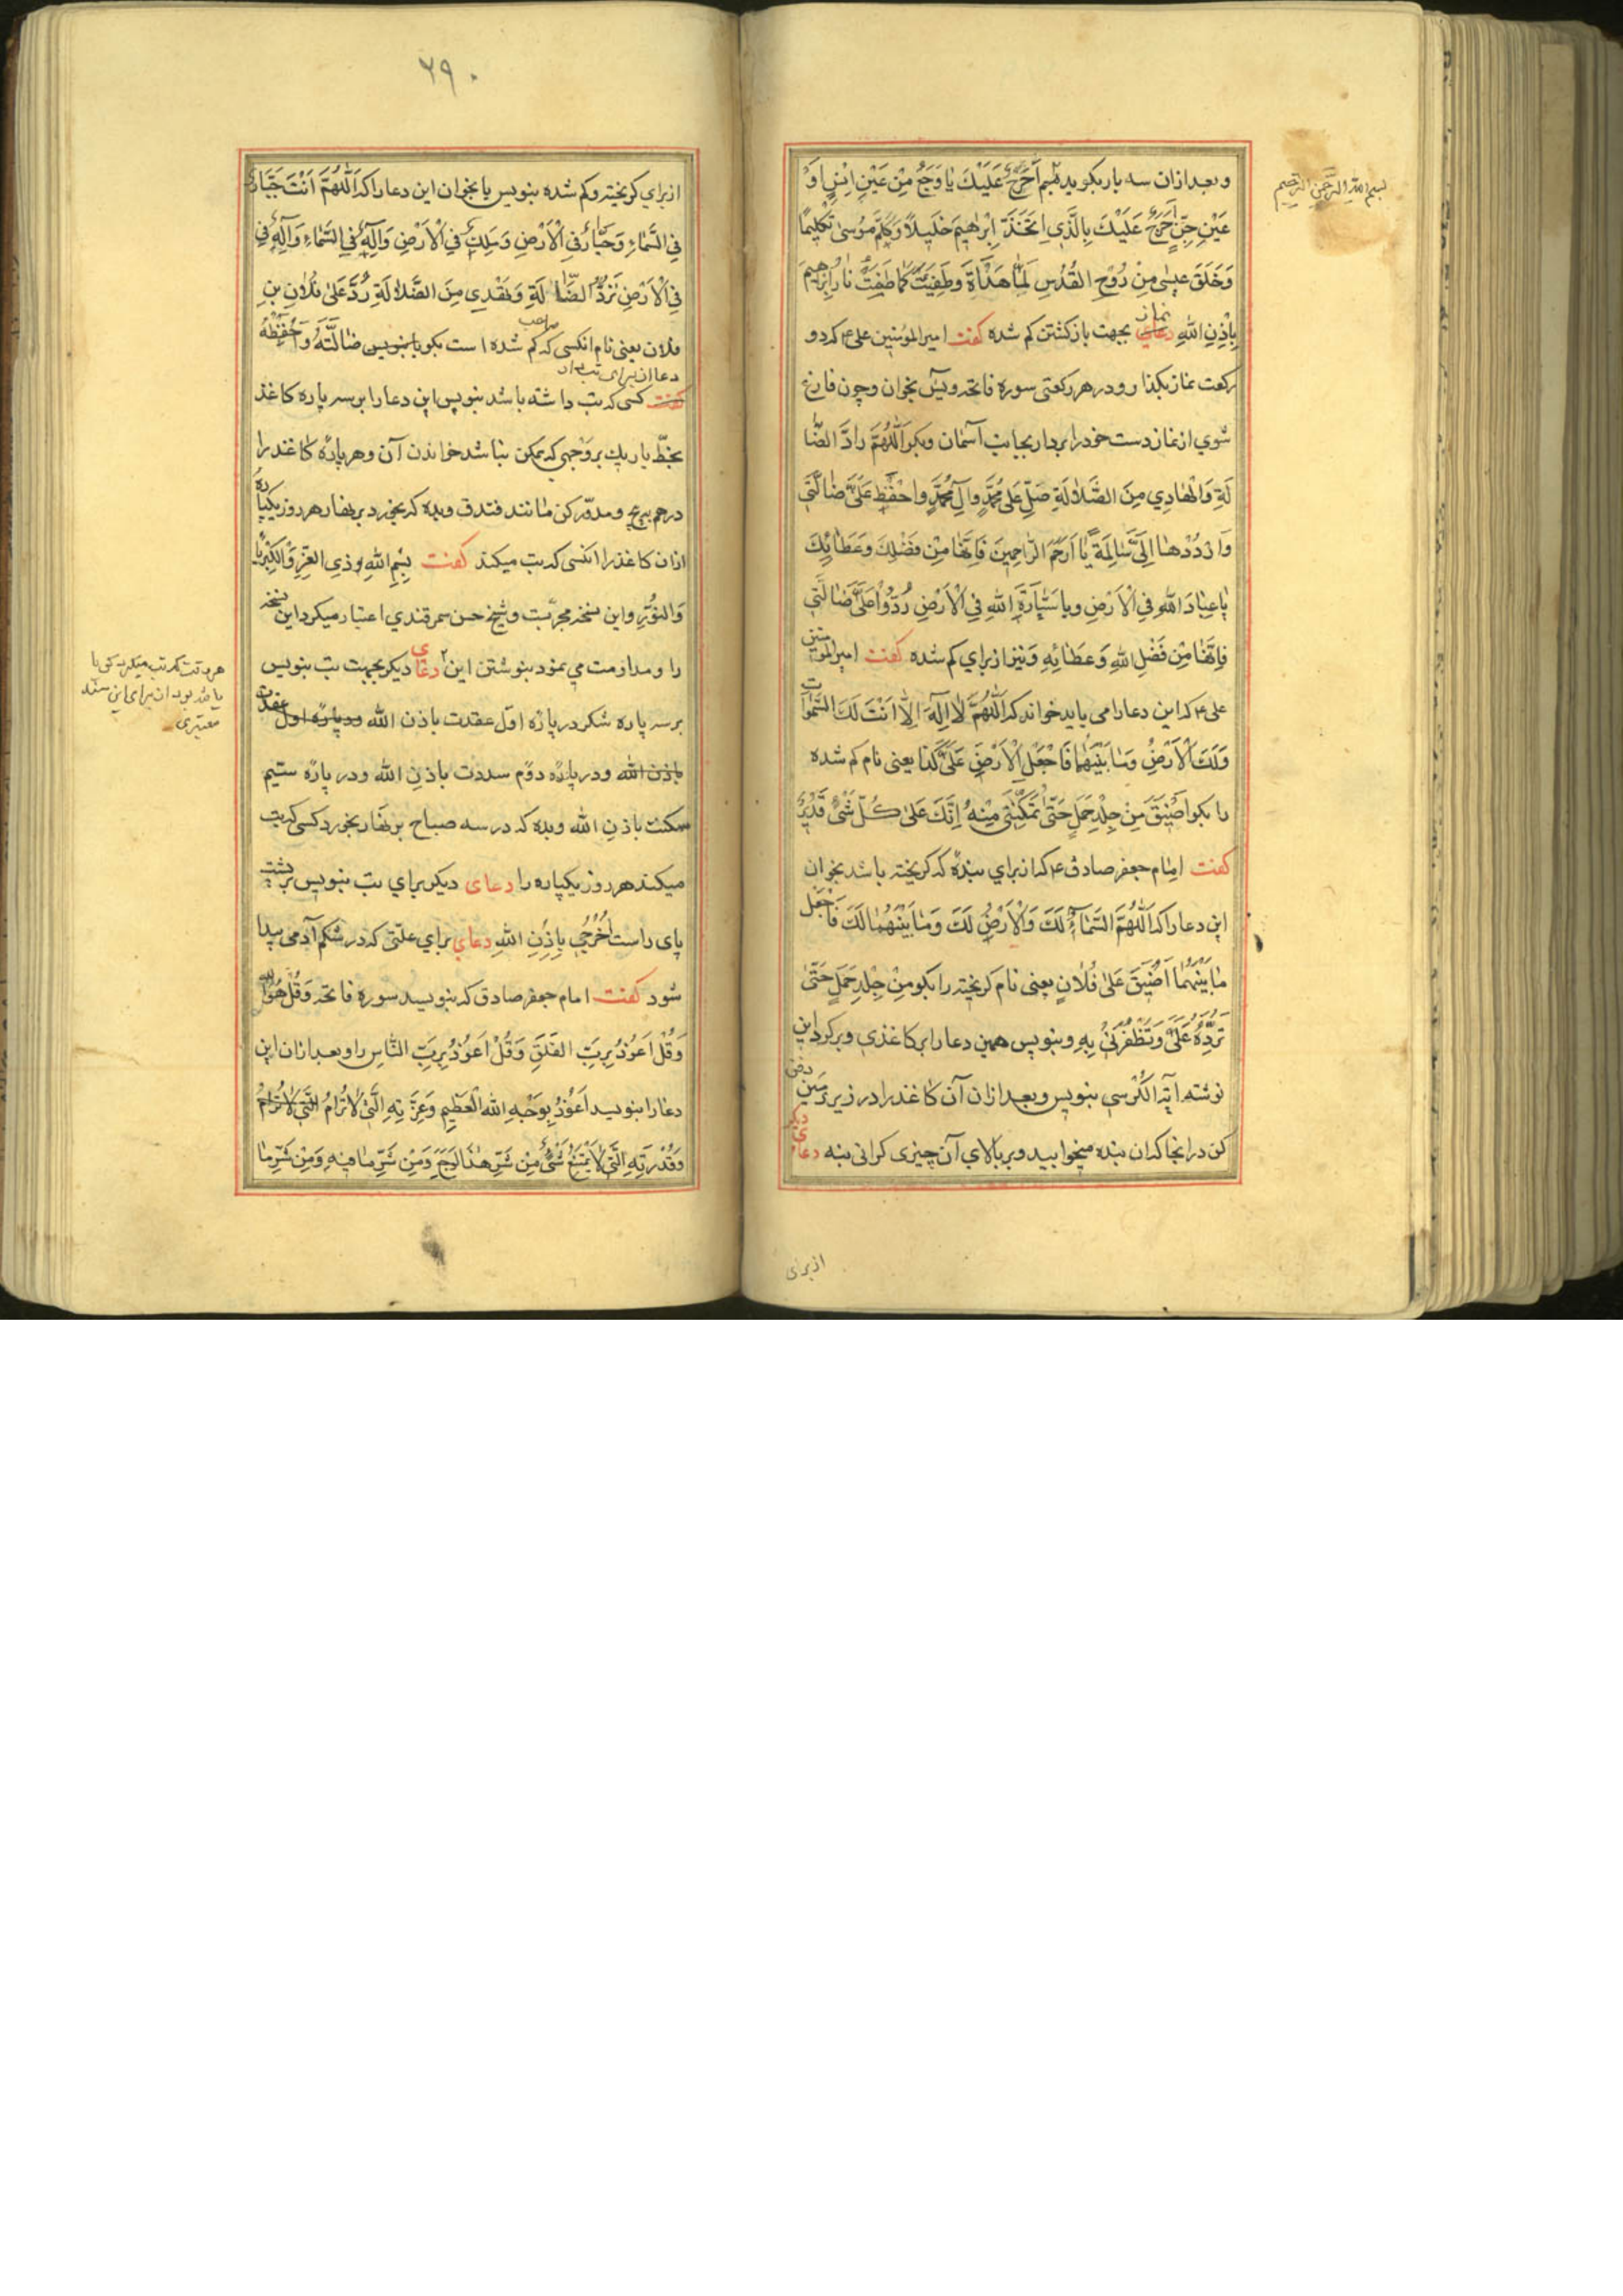 بسم الله الرحمن الرحيم
وبعد ازان سه بار بكويد اَحَرِّجُ عَلَيْكَ يا وَجَعُ مِنْ عَيْنِ اِنْسٍ اَوْ
عَيْنِ جِنٍّ اَحَرِّجُ عَلَيْكَ بِالَّذِي اِتَّخَذَ اِبْرٰهِيمَ خَلِيلًا وَكَلَّمَ مُوسىٰ تَكْلِيمًا
وَخَلَقَ عِيسٰى مِنْ رُوْحِ القُدُسِ لَمّا هَدَأْتَ وَطَفِيتَ كَمَا طَفِيَتْ نارُ اِبْرٰهِيمَ
بِاِذْنِ اللّٰهِ دعاي نماز بجهت باز كشتن كم شده كفت امير المؤمنين على ع كه دو
ركعت نماز بكذارو در هر ركعتى سوره فاتحه ويس بخوان وچون فارغ
شوي از نماز دست خود را بردار بجانب آسمان وبكو اَللّٰهُمَّ رادَّ الضَّا
لَّةِ وَالْهَادِي مِنَ الضَّلالَةِ صَلِّ عَلىٰ مُحَمَّدٍ وَآلِ مُحَمَّدٍ وَاحْفَظْ عَلَىَّ ضالَّتَي
وَارْدُدْهٰا اِلَىَّ سٰالِمَةً يٰا اَرْحَمَ الرّاحِمِينَ فَاِنَّهٰا مِنْ فَضْلِكَ وَعَطٰائِكَ
يٰا عِبٰادَ اللّٰهِ فِي الْاَرْضِ وَيا سَيّارَةَ اللهِ فِي الْاَرْضِ رُدُّوا عَلَىَّ ضٰالَّتي
فَاِنَّهٰا مِنْ فَضْلِ اللهِ وَعَطٰائِهِ ونيز از براي كم شده كفت امير المؤمنين
على ع كه اين دعا را مى بايد خواند كه اَللّٰهُمَّ لا اِلٰهَ اِلّا اَنْتَ لَكَ السَّمٰوات
وَلَكَ الْاَرْضُ وَمٰا بَيْنَهُمٰا فَاجْعَلِ الْاَرْضَ عَلىٰ كَذا يعنى نام كم شده
را بكو اَضْيَقَ مِنْ جِلْدِ جَمَلٍ حَتّىٰ تُمَكِّنَنِي مِنْهُ اِنَّكَ عَلىٰ كُلِّ شَىْءٍ قَدِيرٌ
كفت امام جعفر صادق ع كه از براي بنده كه كريخته باشد بخوان
اين دعا را كه اَللّٰهُمَّ السَّمٰاءُ لَكَ وَالْاَرْضُ لَكَ وَمٰا بَيْنَهُمٰا لَكَ فَاجْعَلْ
مٰا بَيْنَهُمٰا اَضْيَقَ عَلىٰ فُلٰانٍ يعنى نام كريخته را بكو مِنْ جِلْدِ جَمَلٍ حَتّىٰ
تَرُدَّهُ عَلَىَّ وَتُظْفِرَنِي بِهِ وبنويس همين دعا را بر كاغذي وبر كرد اين
نوشته آية الكُرْسي بنويس وبعد ازان آن كاغذ را در زير زمين دفن
كن در انجا كه ان بنده ميخوابيد وبر بالاي آن چيزى كرانى بنه دعاي ديكر
از براى
۲۹۰
از براي كريخته وكم شده بنويس يا بخوان اين دعا را كه اَللّٰهُمَّ اَنْتَ جَبّارٌ
فِي السَّمٰاءِ وَجَبّارٌ فِي الْاَرْضِ وَمَلِكٌ فِي الْاَرْضِ وَاِلٰهٌ فِي السَّمٰاءِ وَاِلٰهٌ فِي
فِي الْاَرْضِ تَرُدُّ الضّالَّةِ وَتَهْدِي مِنَ الضَّلٰالَةِ رُدَّ عَلىٰ فُلٰانِ بْنِ
فلان يعنى نام انكسى كه كم شده است بكو يا بنويس ضٰالَّتَهُ وَاَحْفِظْهُ
كفت كسى كه تب داشته باشد بنويس اين دعا را بر سه پاره كاغذ
بخطّ باريك بر وجهي كه ممكن نباشد خواندن آن وهر پارۀ كاغذ را
درهم پيچ ومدوّر كن مانند فندق وبده كه بخورد بر نهار هر روز يكپاره
ازان كاغذ را انكسى كه تب ميكند كفت بِسْمِ اللّٰهِ ذِي العِزِّ وَالْكِبْرِيٰا
وَالنُّوْرِ واين نسخه مجرّبست وشيخ حسن سمرقندي اعتبار ميكرد اين نسخه
را ومداومت مي نمود بنوشتن اين دعاي ديكر بجهت تب بنويس
بر سه پاره شكر در پارۀ اوّل عقدت باذن الله ودر پارۀ اول عقدت
باذن الله ودر پارۀ دوّم سددت باذنِ الله ودر پارۀ سيّم
سكنت باذنِ الله وبده كه در سه صباح بر نهار بخورد كسى كه تب
ميكند هر روز يكپاره را دعاى ديكر براي تب بنويس بر پشت
پاى راست اُخْرُجِي بِاِذْنِ اللهِ دعاي براي علّتى كه در شكم آدمى پيدا
شود كفت امام جعفر صادق كه بنويسد سوره فاتحه وَقُلْ هُوَ اللّٰه
وَقُلْ اَعُوْذُ بِرَبِّ الفَلَقِ وَقُلْ اَعُوْذُ بِرَبِّ النّاسِ را وبعد ازان اين
دعا را بنويسد اَعُوْذُ بِوَجْهِ اللهِ الْعَظِيمِ وَعِزَّتِهِ الَّتي لا تُرٰامُ الَّتي لا تُرٰامُ
وَقُدْرَتِهِ الَّتي لا يَمْتَنِعُ شَىْءٌ مِنْ شَرِّ هٰذَا الوَجَعِ وَمِنْ شَرِّ مٰا فِيهِ وَمِنْ شَرِّ مٰا
هر وقت كه تب ميكرد
معتبرى